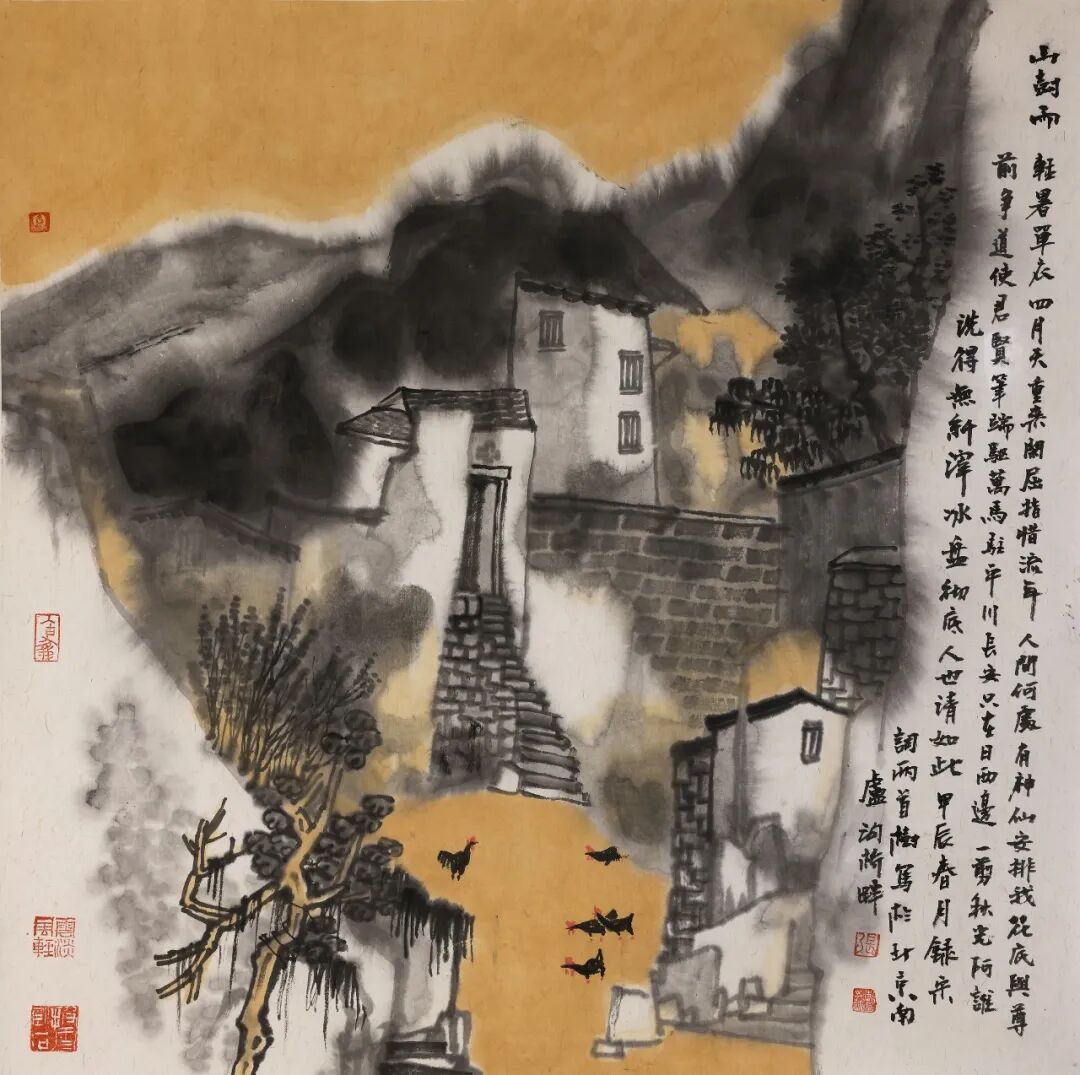 山
輕暑單衣四月天重來閑屈指惜流年人間何處有神仙安排我花底與尊
前爭道使君賢筆端驅萬馬駐平川長安只在日西邊一剪秋光阿誰
洗得無纖滓冰盤徹底人世請如此甲辰春月錄宋
詞兩首樹於北京南
盧溝橋畔
張